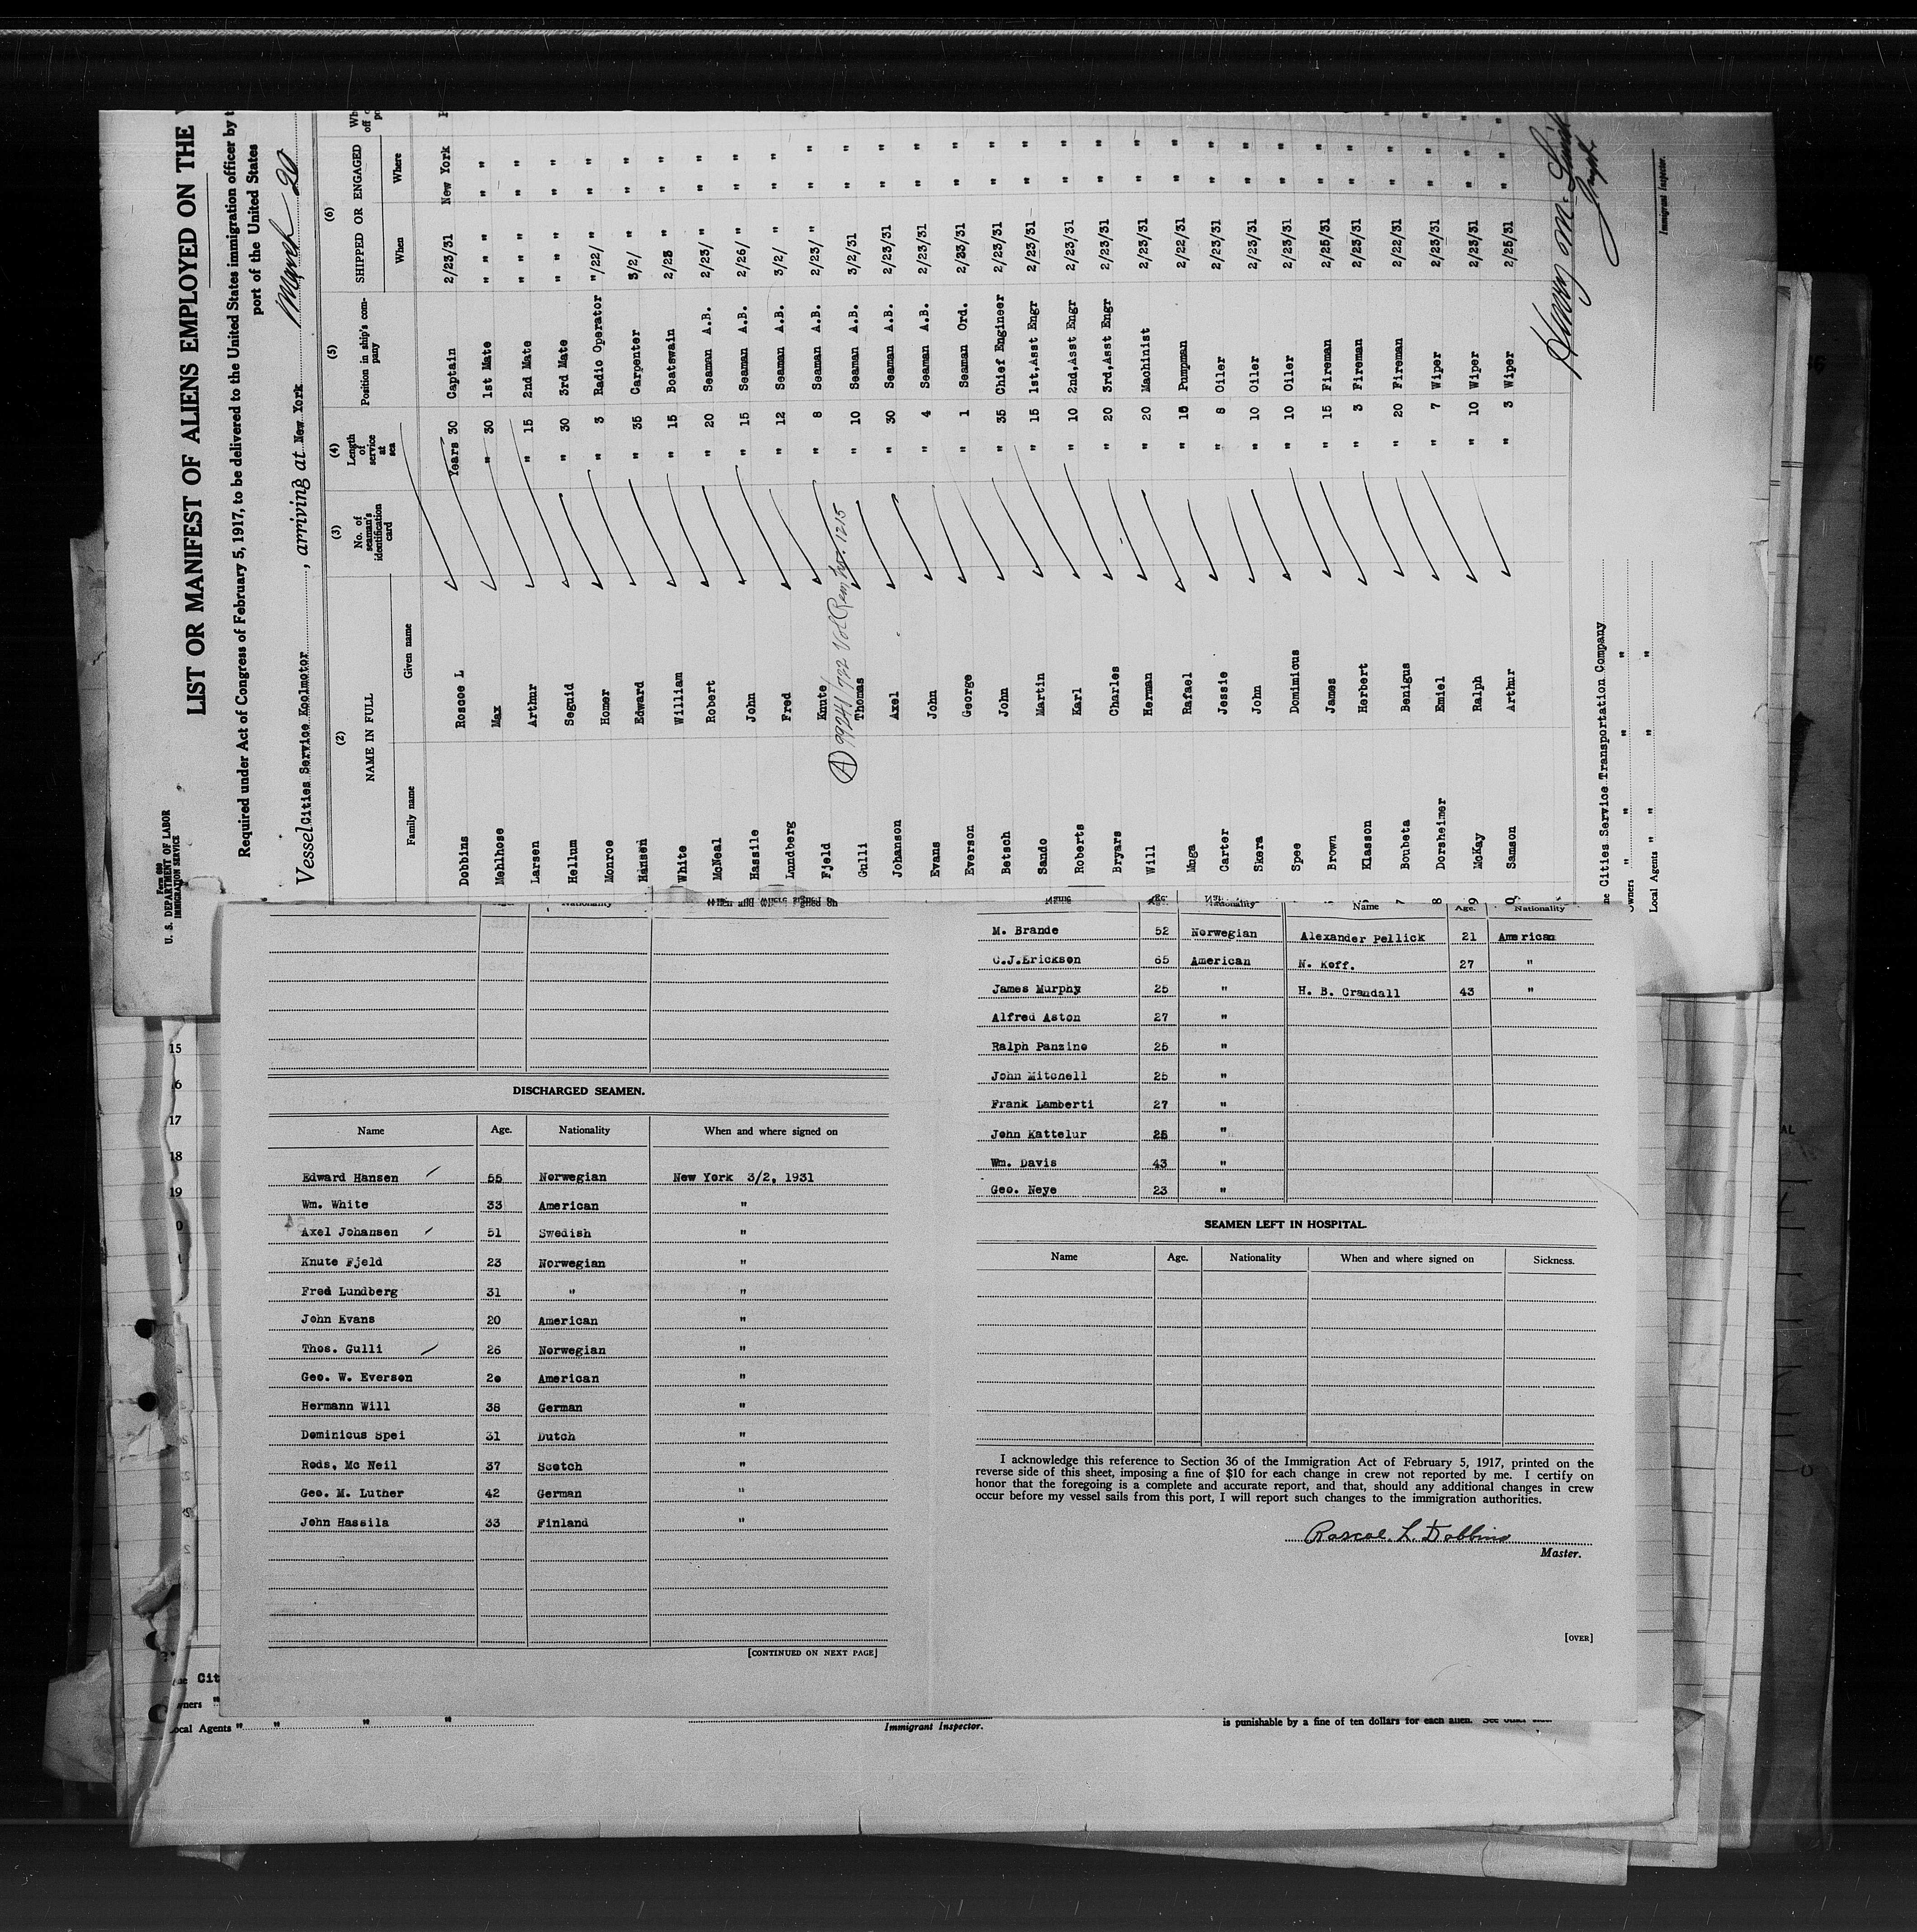 Form 680
U. S. DEPARTMENT OF LABOR
IMMIGRATION SERVICE
LIST OR MANIFEST OF ALIENS EMPLOYED ON THE
Required under Act of Congress of February 5, 1917, to be delivered to the United States immigration officer by t
port of the United States
Vessel Cities Service Koolmotor, arriving at New York March 20
(2) (3) (4) (5) (6)
NAME IN FULL No. of seaman's identification card Length of service at sea Position in ship's company SHIPPED OR ENGAGED
Family name Given name When Where
Dobbins Roscoe L Years 30 Captain 2/23/31 New York
Mehlhose Max " 30 1st Mate " " " " "
Larsen Arthur " 15 2nd Mate " " " " "
Hellum Seguid " 30 3rd Mate " " " "
Monroe Homer " 3 Radio Operator "/22/ " " "
Hansen Edward " 35 Carpenter 3/2/ " " "
White William " 15 Boatswain 2/23 " " "
McNeal Robert " 20 Seaman A.B. 2/23/ " " "
Hassile John " 15 Seaman A.B. 2/26/ " " "
Lundberg Fred " 12 Seaman A.B. 3/2/ " " "
Fjeld Knute " 8 Seaman A.B. 2/23/ " " "
(A) 99241/722 Vol Rem No. 1215
Gulli Thomas " 10 Seaman A.B. 3/2/31 " "
Johanson Axel " 30 Seaman A.B. 2/23/31 " "
Evans John " 4 Seaman A.B. 2/23/31 " "
Everson George " 1 Seaman Ord. 2/23/31 " "
Betsch John " 35 Chief Engineer 2/23/31 " "
Sando Martin " 15 1st,Asst Engr 2/23/31 " "
Roberts Karl " 10 2nd,Asst Engr 2/23/31 " "
Bryars Charles " 20 3rd,Asst Engr 2/23/31 " "
Will Herman " 20 Machinist 2/23/31 " "
Muga Rafael " 10 Pumpman 2/22/31 " "
Carter Jessie " 8 Oiler 2/23/31 " "
Skera John " 10 Oiler 2/23/31 " "
Spee Domimicus " 10 Oiler 2/23/31 " "
Brown James " 15 Fireman 2/25/31 " "
Klasson Herbert " 3 Fireman 2/23/31 " "
Boubeta Benigus " 20 Fireman 2/22/31 " "
Dorsheimer Emiel " 7 Wiper 2/23/31 " "
McKay Ralph " 10 Wiper 2/23/31 " "
Samson Arthur " 3 Wiper 2/25/31 " "
Cities Service Transportation Company
Owners " " " "
Local Agents " " " "
Immigrant Inspector.
DISCHARGED SEAMEN.
Name Age. Nationality When and where signed on
Edward Hansen 55 Norwegian New York 3/2, 1931
Wm. White 33 American "
Axel Johansen 51 Swedish "
Knute Fjeld 23 Norwegian "
Fred Lundberg 31 " "
John Evans 20 American "
Thos. Gulli 26 Norwegian "
Geo. W. Everson 2o American "
Hermann Will 38 German "
Dominicus Spei 31 Dutch "
Rods, Mc Neil 37 Scotch "
Geo. M. Luther 42 German "
John Hassila 33 Finland "
[CONTINUED ON NEXT PAGE]
Name Age. Nationality Name Age. Nationality
M. Brande 52 Norwegian Alexander Pellick 21 American
C.J.Erickson 65 American N. Koff. 27 "
James Murphy 25 " H. B. Crandall 43 "
Alfred Aston 27 "
Ralph Panzine 25 "
John Mitchell 25 "
Frank Lamberti 27 "
John Kattelur 25 "
Wm. Davis 43 "
Geo. Neye 23 "
SEAMEN LEFT IN HOSPITAL.
Name Age. Nationality When and where signed on Sickness.
I acknowledge this reference to Section 36 of the Immigration Act of February 5, 1917, printed on the
reverse side of this sheet, imposing a fine of $10 for each change in crew not reported by me. I certify on
honor that the foregoing is a complete and accurate report, and that, should any additional changes in crew
occur before my vessel sails from this port, I will report such changes to the immigration authorities.
Roscoe L. Dobbins
Master.
[OVER]
15
16
17
18
19
Cit
Local Agents " " " "
Immigrant Inspector.
is punishable by a fine of ten dollars for each alien.